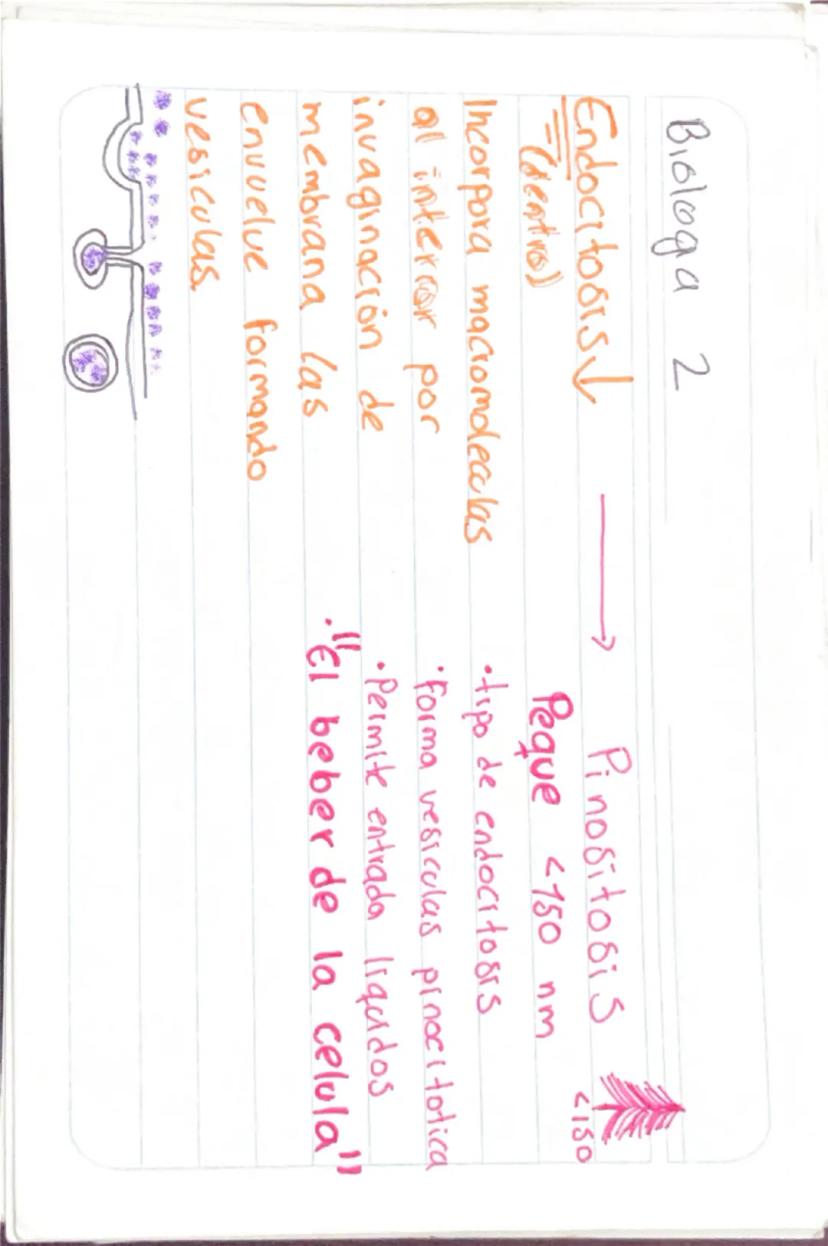 Biologa 2
Endocitosis↓ → Pinositosis
<150
(dentro)
Incorpora macromoleculas
al interior por
invaginación de
membrana las
envuelve formando
vesiculas
Peque <150 nm
·tipo de endocitosis
·forma vesiculas pinocitotica
·Permite entrada liquidos
·"El beber de la celula"